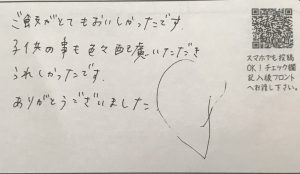 ご飯がとてもおいしかったです。
子供の事も色々配慮いただき
うれしかったです。
ありがとうございました
スマホでも投稿
OK！チェック欄
記入後フロント
へお渡し下さい。